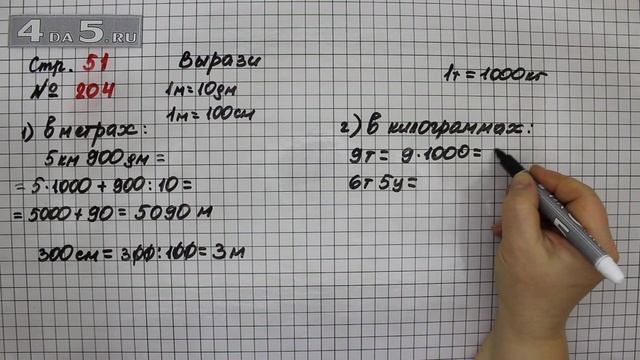 4 DA 5.RU
Стр. 51
№ 204
Вырази
1м=10дм
1м=100см
1) В метрах:
5км 900дм=
=5·1000+900:10=
=5000+90=5090 м
300см=300:100=3м
1т=1000кг
2) В килограммах:
9т= 9·1000=
6т 5ц=